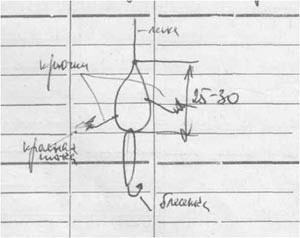 леска
крючки
25-30
красная
нитка
блесенка